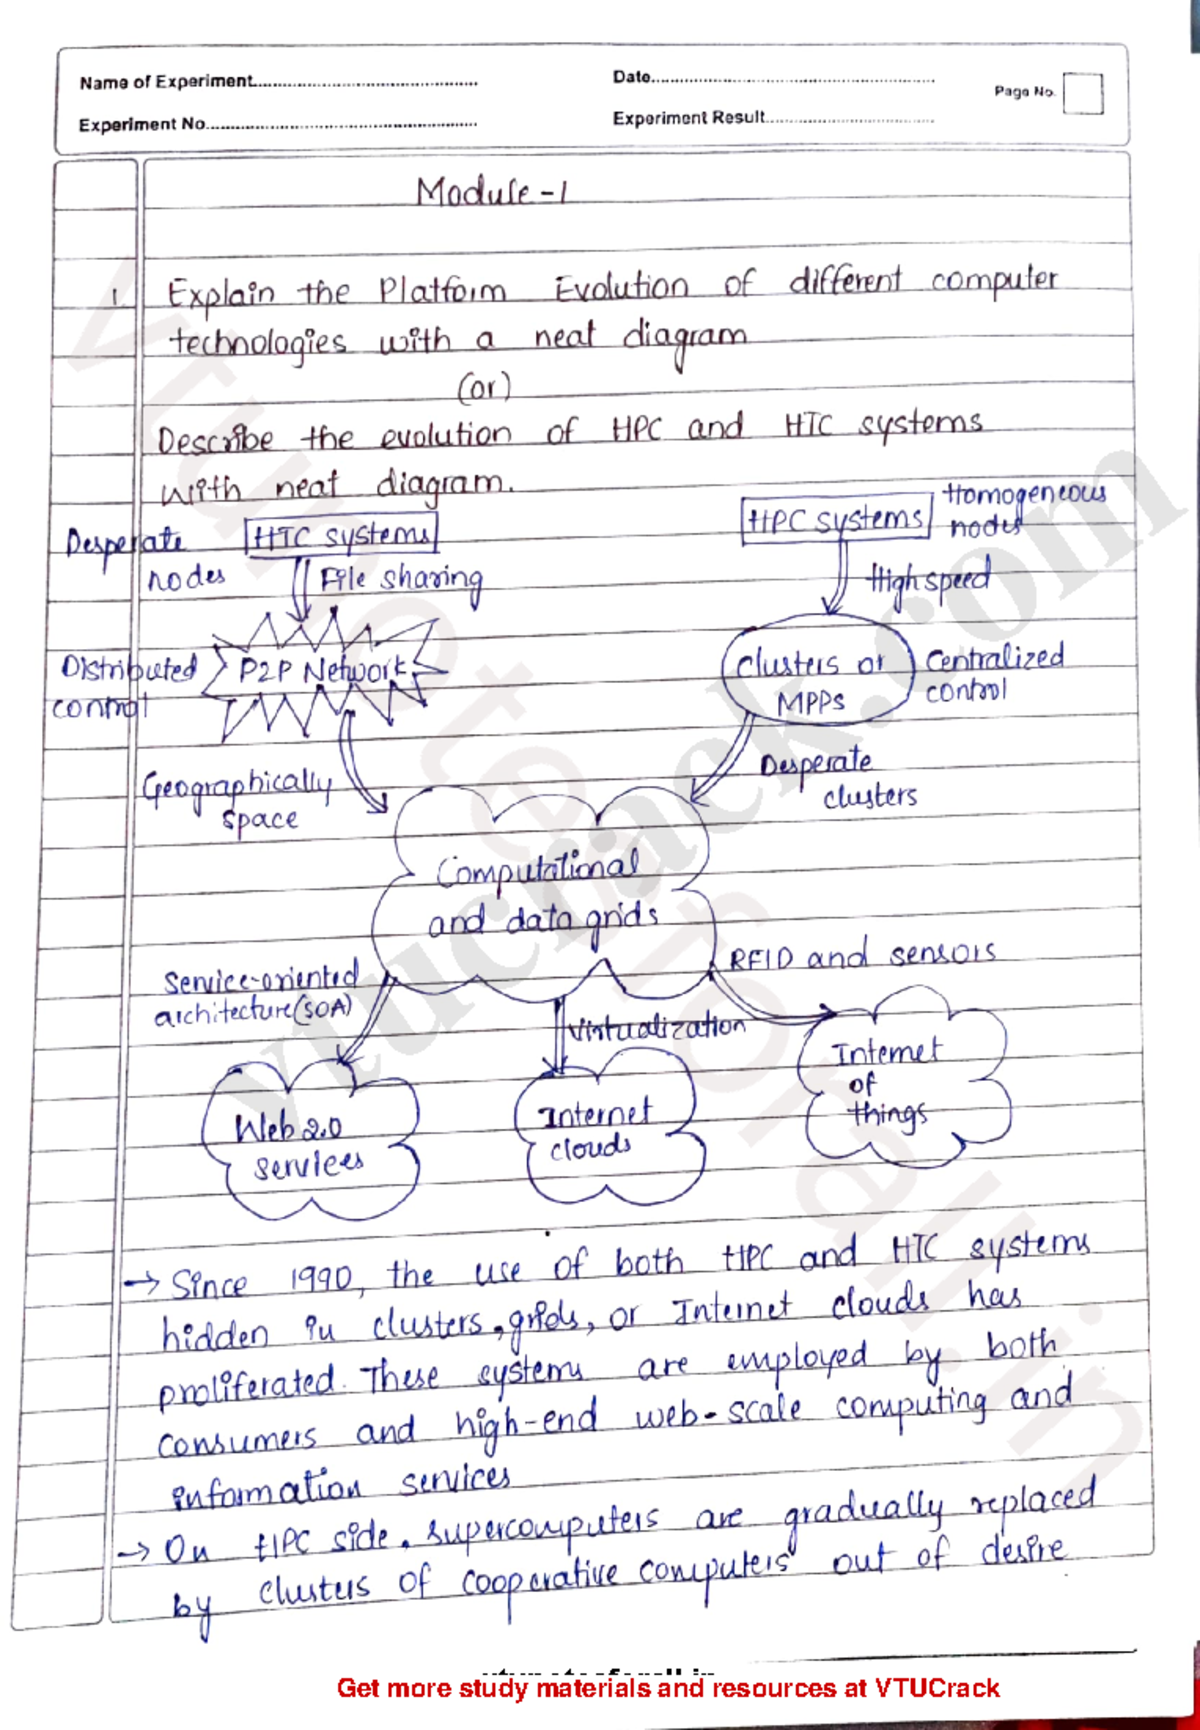 Name of Experiment
Date
Page No.
Experiment No.
Experiment Result
Module-1
1. Explain the Platform Evolution of different computer
technologies with a neat diagram
(or)
Describe the evolution of HPC and HTC systems
with neat diagram.
Desperate nodes
HTC systems
File sharing
HPC systems
Homogeneous nodes
High speed
Distributed control
P2P Network
Clusters or MPPs
Centralized control
Geographically space
Desperate clusters
Computational
and data grids
RFID and sensors
Service-oriented
architecture(SOA)
Virtualization
Web 2.0
services
Internet
clouds
Internet
of
things
→ Since 1990, the use of both HPC and HTC systems
hidden in clusters, grids, or Internet clouds has
proliferated. These systems are employed by both
consumers and high-end web-scale computing and
information services
→ On HPC side, supercomputers are gradually replaced
by clusters of cooperative computers out of desire
vtucrack.com
Get more study materials and resources at VTUCrack